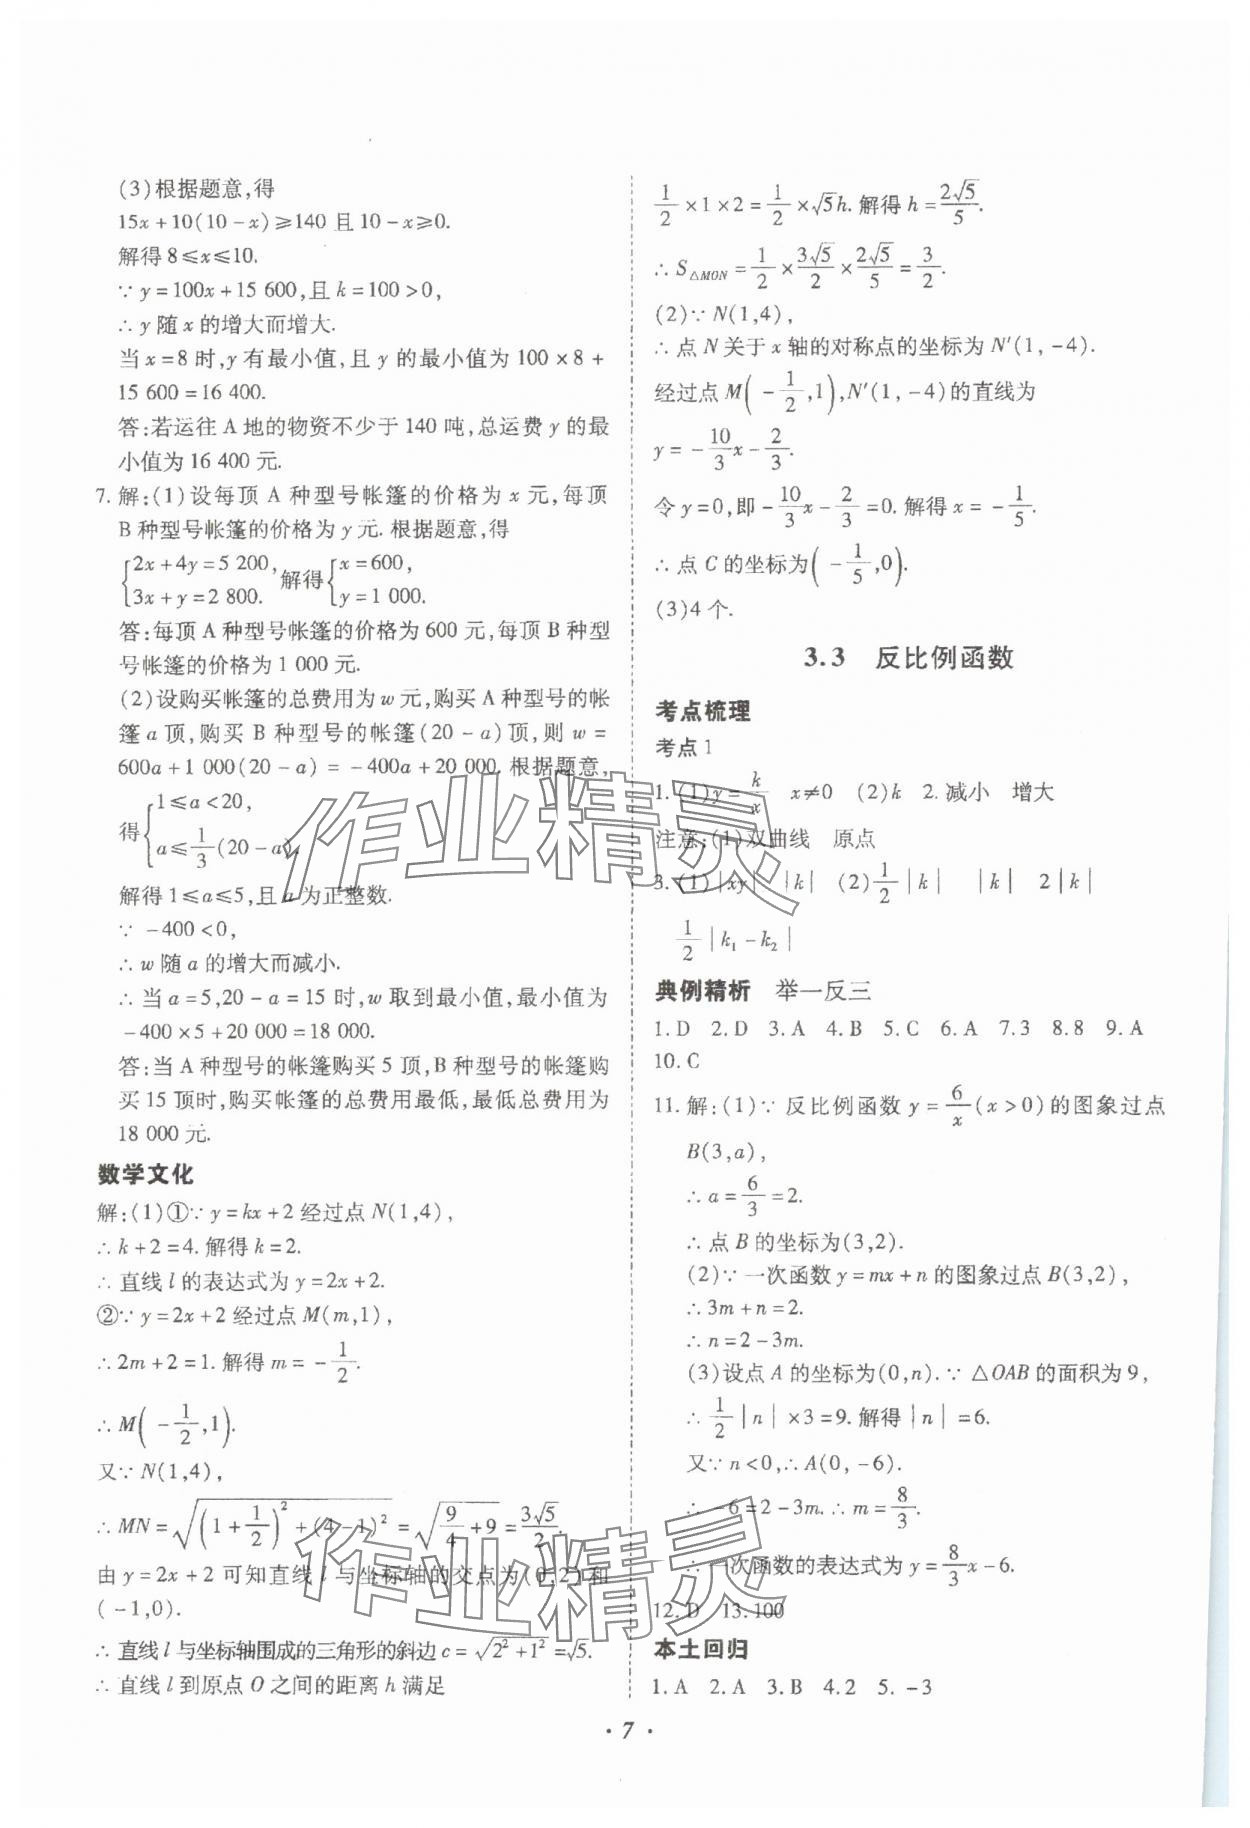 (3)根据题意,得
15x+10(10-x)≥140 且 10-x≥0.
解得 8≤x≤10.
∵ y=100x+15 600,且 k=100>0,
∴ y 随 x 的增大而增大.
当 x=8 时,y 有最小值,且 y 的最小值为 100×8+
15 600=16 400.
答:若运往 A 地的物资不少于 140 吨,总运费 y 的最
小值为 16 400 元.
7. 解:(1)设每顶 A 种型号帐篷的价格为 x 元,每顶
B 种型号帐篷的价格为 y 元. 根据题意,得
{2x+4y=5 200, 3x+y=2 800. 解得{x=600, y=1 000.
答:每顶 A 种型号帐篷的价格为 600 元,每顶 B 种型
号帐篷的价格为 1 000 元.
(2)设购买帐篷的总费用为 w 元,购买 A 种型号的帐
篷 a 顶,购买 B 种型号的帐篷(20-a)顶,则 w=
600a+1 000(20-a)=-400a+20 000. 根据题意,
得{1≤a<20, a≤1/3(20-a).
解得 1≤a≤5,且 a 为正整数.
∵ -400<0,
∴ w 随 a 的增大而减小.
∴ 当 a=5,20-a=15 时,w 取到最小值,最小值为
-400×5+20 000=18 000.
答:当 A 种型号的帐篷购买 5 顶,B 种型号的帐篷购
买 15 顶时,购买帐篷的总费用最低,最低总费用为
18 000 元.
数学文化
解:(1)①∵ y=kx+2 经过点 N(1,4),
∴ k+2=4. 解得 k=2.
∴ 直线 l 的表达式为 y=2x+2.
②∵ y=2x+2 经过点 M(m,1),
∴ 2m+2=1. 解得 m=-1/2.
∴ M(-1/2,1).
又∵ N(1,4),
∴ MN=√((1+1/2)²+(4-1)²)=√(9/4+9)=3√5/2.
由 y=2x+2 可知直线 l 与坐标轴的交点为(0,2)和
(-1,0).
∴ 直线 l 与坐标轴围成的三角形的斜边 c=√(2²+1²)=√5.
∴ 直线 l 到原点 O 之间的距离 h 满足
1/2×1×2=1/2×√5h. 解得 h=2√5/5.
∴ S△MON=1/2×3√5/2×2√5/5=3/2.
(2)∵ N(1,4),
∴ 点 N 关于 x 轴的对称点的坐标为 N′(1,-4).
经过点 M(-1/2,1),N′(1,-4)的直线为
y=-10/3x-2/3.
令 y=0,即-10/3x-2/3=0. 解得 x=-1/5.
∴ 点 C 的坐标为(-1/5,0).
(3)4 个.
3.3 反比例函数
考点梳理
考点 1
1. (1)y=k/x x≠0 (2)k 2. 减小 增大
注意:(1)双曲线 原点
3. (1)|xy| |k| (2)1/2|k| |k| 2|k|
1/2|k₁-k₂|
典例精析 举一反三
1. D 2. D 3. A 4. B 5. C 6. A 7. 3 8. 8 9. A
10. C
11. 解:(1)∵ 反比例函数 y=6/x(x>0)的图象过点
B(3,a),
∴ a=6/3=2.
∴ 点 B 的坐标为(3,2).
(2)∵ 一次函数 y=mx+n 的图象过点 B(3,2),
∴ 3m+n=2.
∴ n=2-3m.
(3)设点 A 的坐标为(0,n). ∵ △OAB 的面积为 9,
∴ 1/2|n|×3=9. 解得|n|=6.
又∵ n<0,∴ A(0,-6).
∴ -6=2-3m. ∴ m=8/3.
∴ 一次函数的表达式为 y=8/3x-6.
12. D 13. 100
本土回归
1. A 2. A 3. B 4. 2 5. -3
· 7 ·
作业精灵
作业精灵